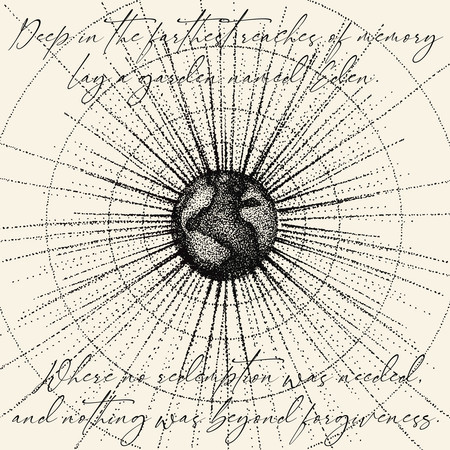 Deep in the farthest reaches of memory
Lay a garden named Eden.
Where no redemption was needed,
and nothing was beyond forgiveness.